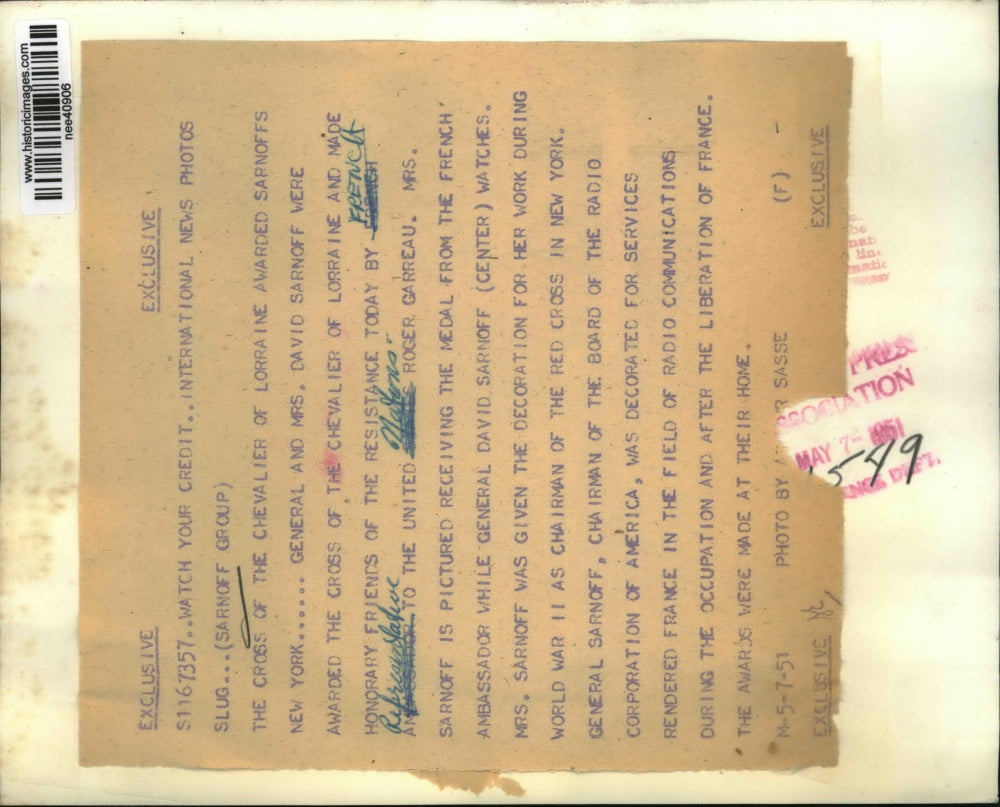 www.historicimages.com
nee40906
EXCLUSIVE EXCLUSIVE
S1167357..WATCH YOUR CREDIT..INTERNATIONAL NEWS PHOTOS
SLUG...(SARNOFF GROUP)
THE CROSS OF THE CHEVALIER OF LORRAINE AWARDED SARNOFFS
NEW YORK...... GENERAL AND MRS. DAVID SARNOFF WERE
AWARDED THE CROSS OF THE CHEVALIER OF LORRAINE AND MADE
HONORARY FRIENDS OF THE RESISTANCE TODAY BY FRENCH
Representative TO THE UNITED Nations ROGER GARREAU. MRS.
SARNOFF IS PICTURED RECEIVING THE MEDAL FROM THE FRENCH
AMBASSADOR WHILE GENERAL DAVID SARNOFF (CENTER) WATCHES.
MRS. SARNOFF WAS GIVEN THE DECORATION FOR HER WORK DURING
WORLD WAR II AS CHAIRMAN OF THE RED CROSS IN NEW YORK.
GENERAL SARNOFF, CHAIRMAN OF THE BOARD OF THE RADIO
CORPORATION OF AMERICA, WAS DECORATED FOR SERVICES
RENDERED FRANCE IN THE FIELD OF RADIO COMMUNICATIONS
DURING THE OCCUPATION AND AFTER THE LIBERATION OF FRANCE.
THE AWARDS WERE MADE AT THEIR HOME.
M-5-7-51 PHOTO BY SASSE (F)
EXCLUSIVE EXCLUSIVE
PRESS
ASSOCIATION
MAY 7- 1951
1549
DEPT.